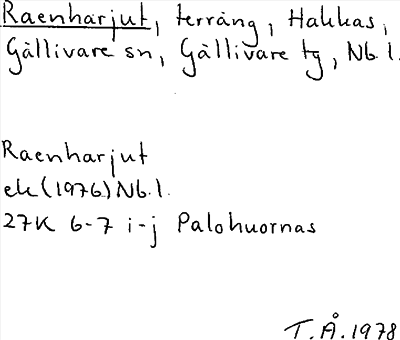 Raenharjut, terräng, Hakkas,
Gällivare sn, Gällivare tg, Nb.l.
Raenharjut
ek (1976) Nb.l.
27K 6-7 i-j Palohuornas
T.Å. 1978